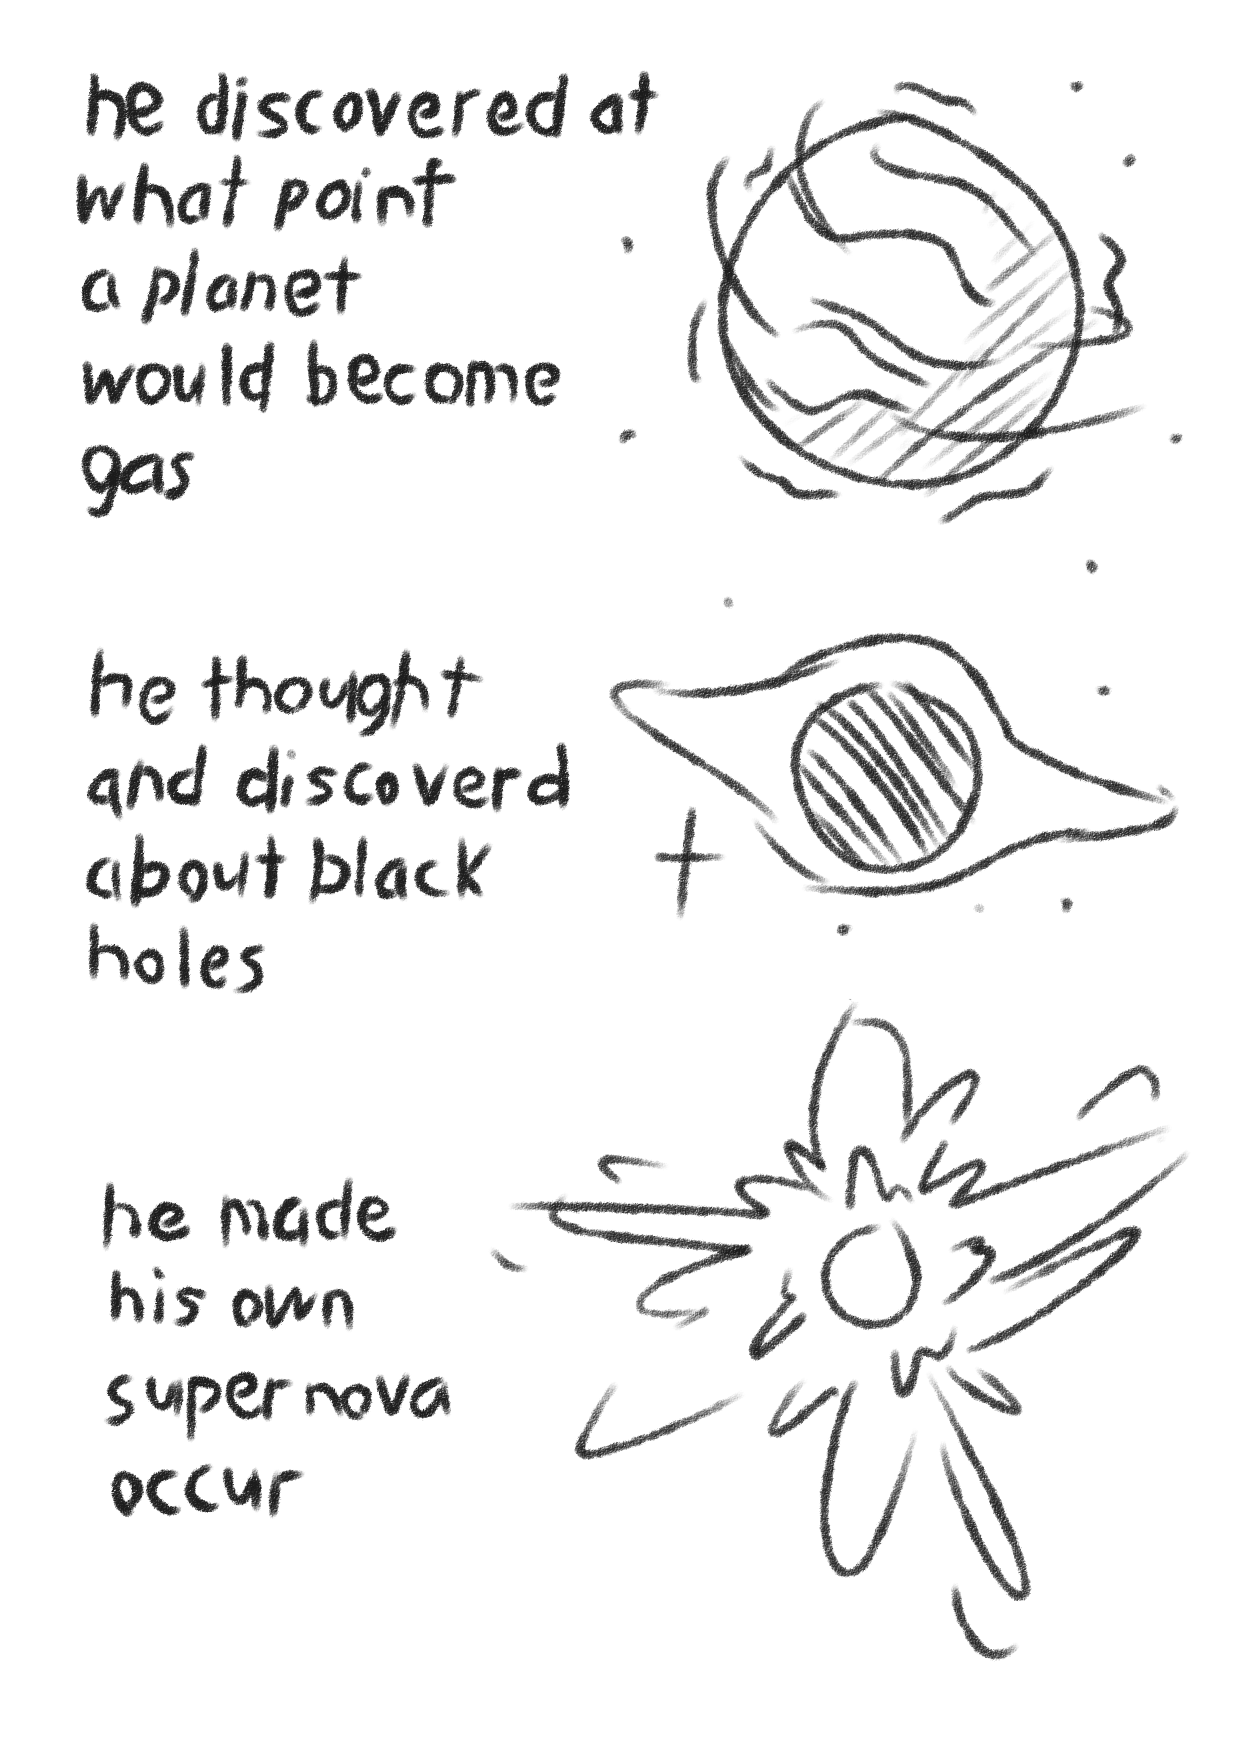 he discovered at
what point
a planet
would become
gas
he thought
and discoverd
about black
holes
he made
his own
supernova
occur